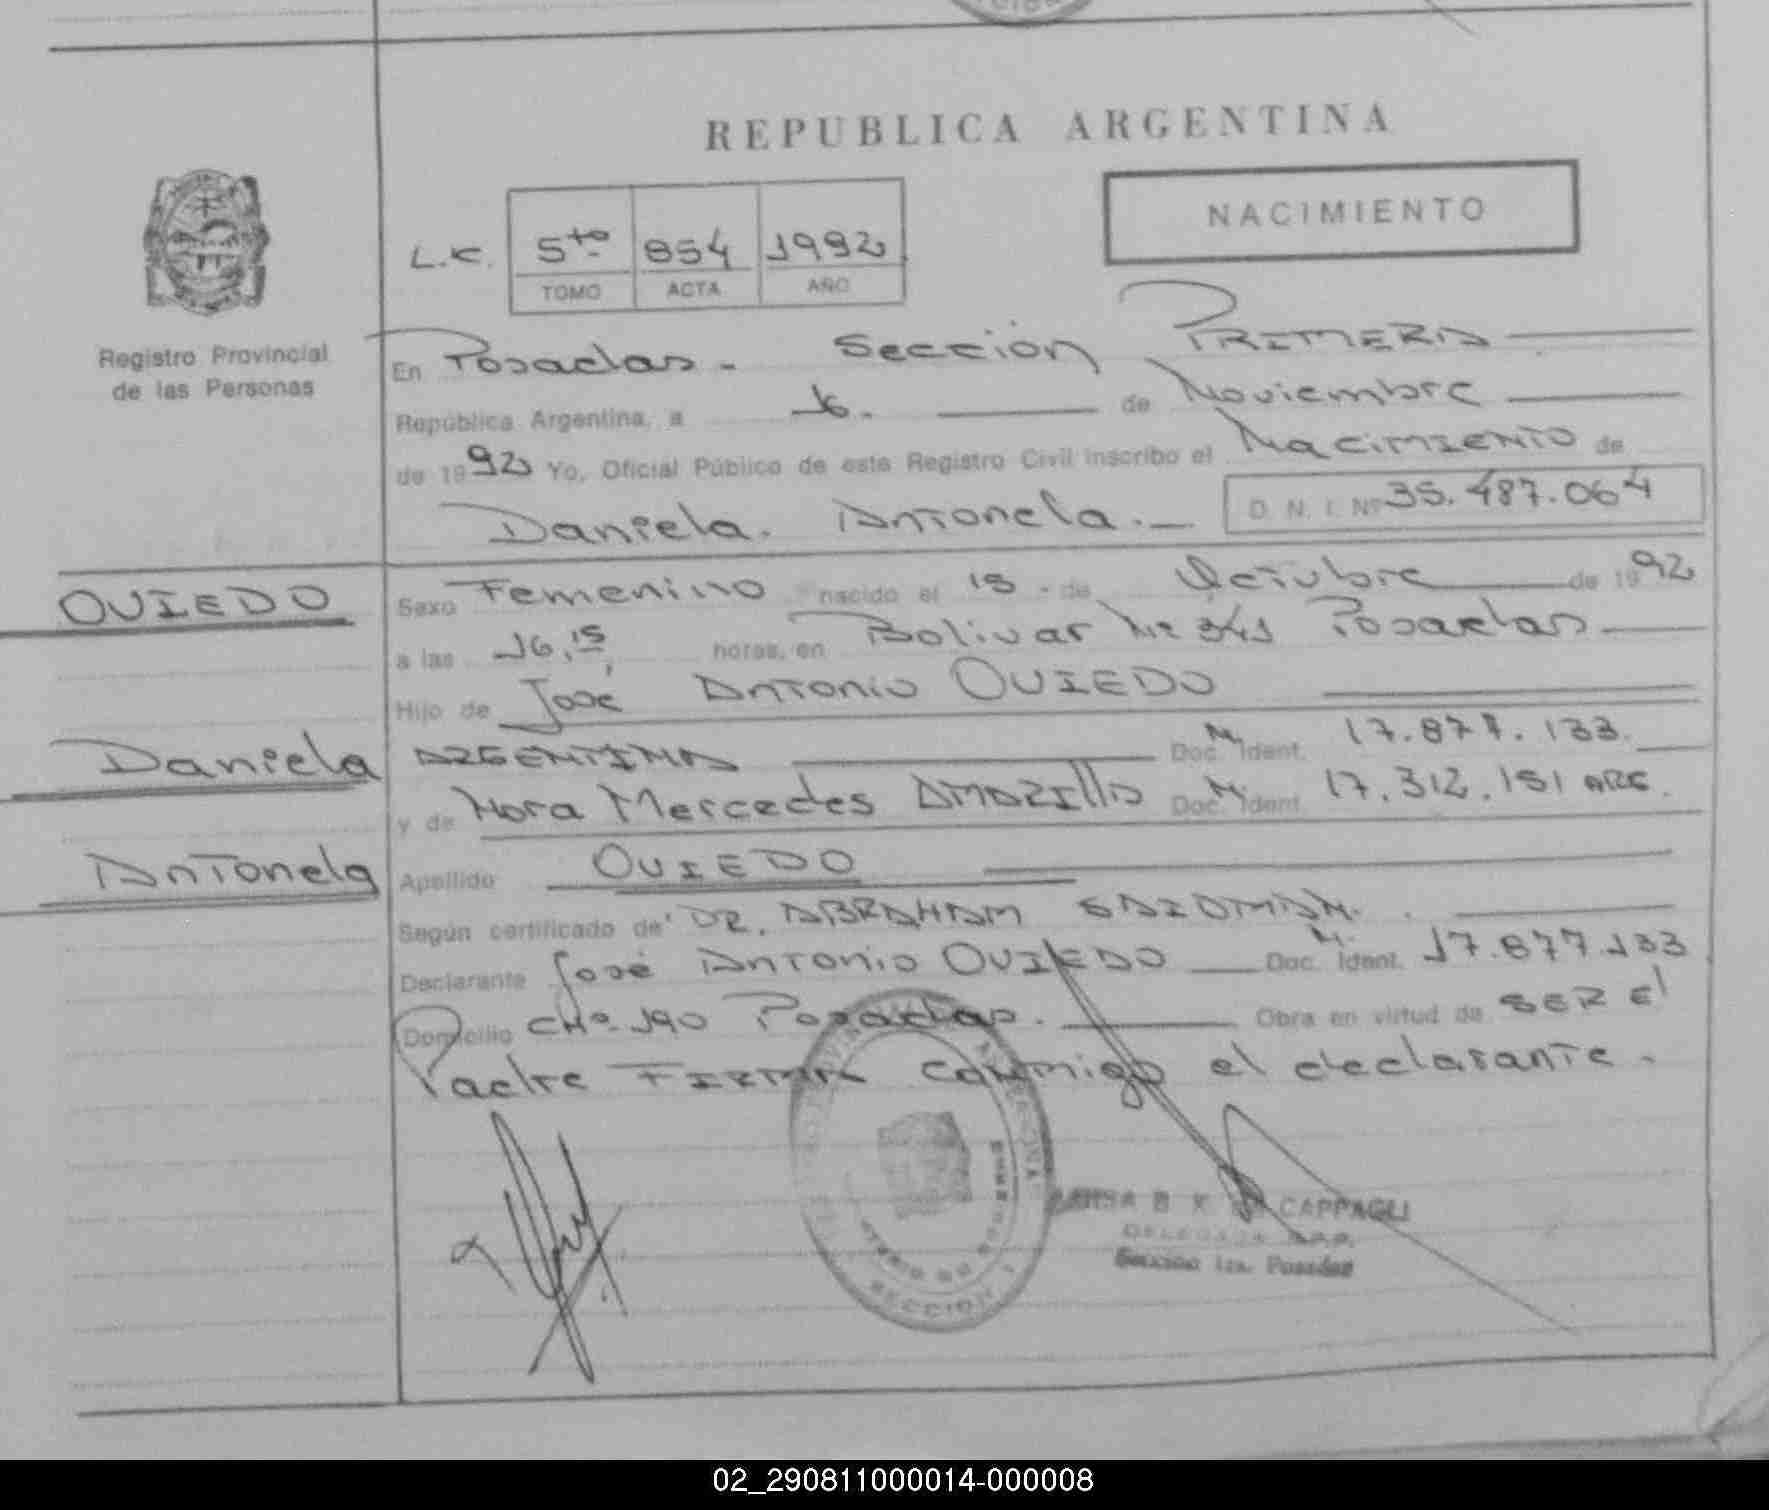 REPUBLICA ARGENTINA
NACIMIENTO
L.C. 5to 854 1992
TOMO ACTA AÑO
Registro Provincial
de las Personas
En Posadas - Sección PRIMERA
República Argentina, a 16. de Noviembre
de 1992 Yo, Oficial Público de este Registro Civil inscribo el Nacimiento de
Daniela. Antonela.- D. N. I. Nº 35.487.064
OVIEDO
Sexo Femenino nacido el 15 - de Octubre de 1992
a las 16,15, horas, en Bolivar Nº 341 Posadas
Hijo de José Antonio OVIEDO
Daniela
ARGENTINA Doc. M. Ident. 17.877.133.
y de Mercedes Doc. M. Ident. 17.312.151 ARG.
Antonela
Apellido OVIEDO
Según certificado de DR. ABRAHAM
Declarante José Antonio OVIEDO Doc. M. Ident. 17.877.133
Domicilio CHª 190 Posadas. Obra en virtud de SER El
Padre FIRMA conmigo el declarante.
CAPPAGLI
DELEGADA R.P.P.
Seccion 1ra. Posadas
SECCION 1
02_290811000014-000008